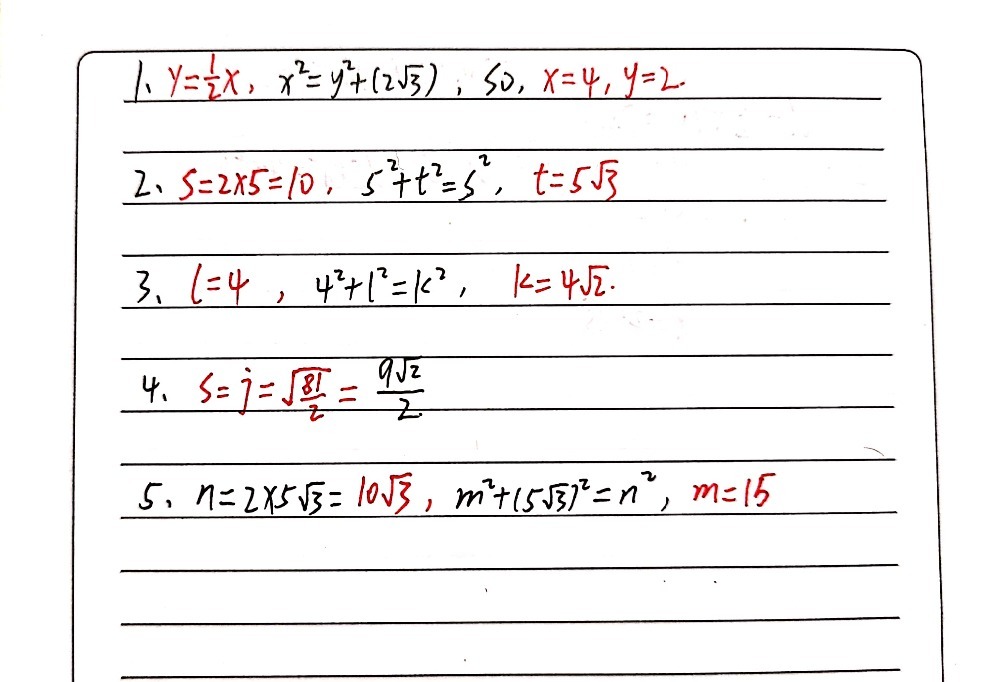 1、y=½x, x²=y²+(2√3), so, x=4, y=2.
2、s=2×5=10, 5²+t²=s², t=5√3
3、l=4, 4²+l²=k², k=4√2.
4、s=j=√(81/2)=9√2/2
5、n=2×5√3=10√3, m²+(5√3)²=n², m=15